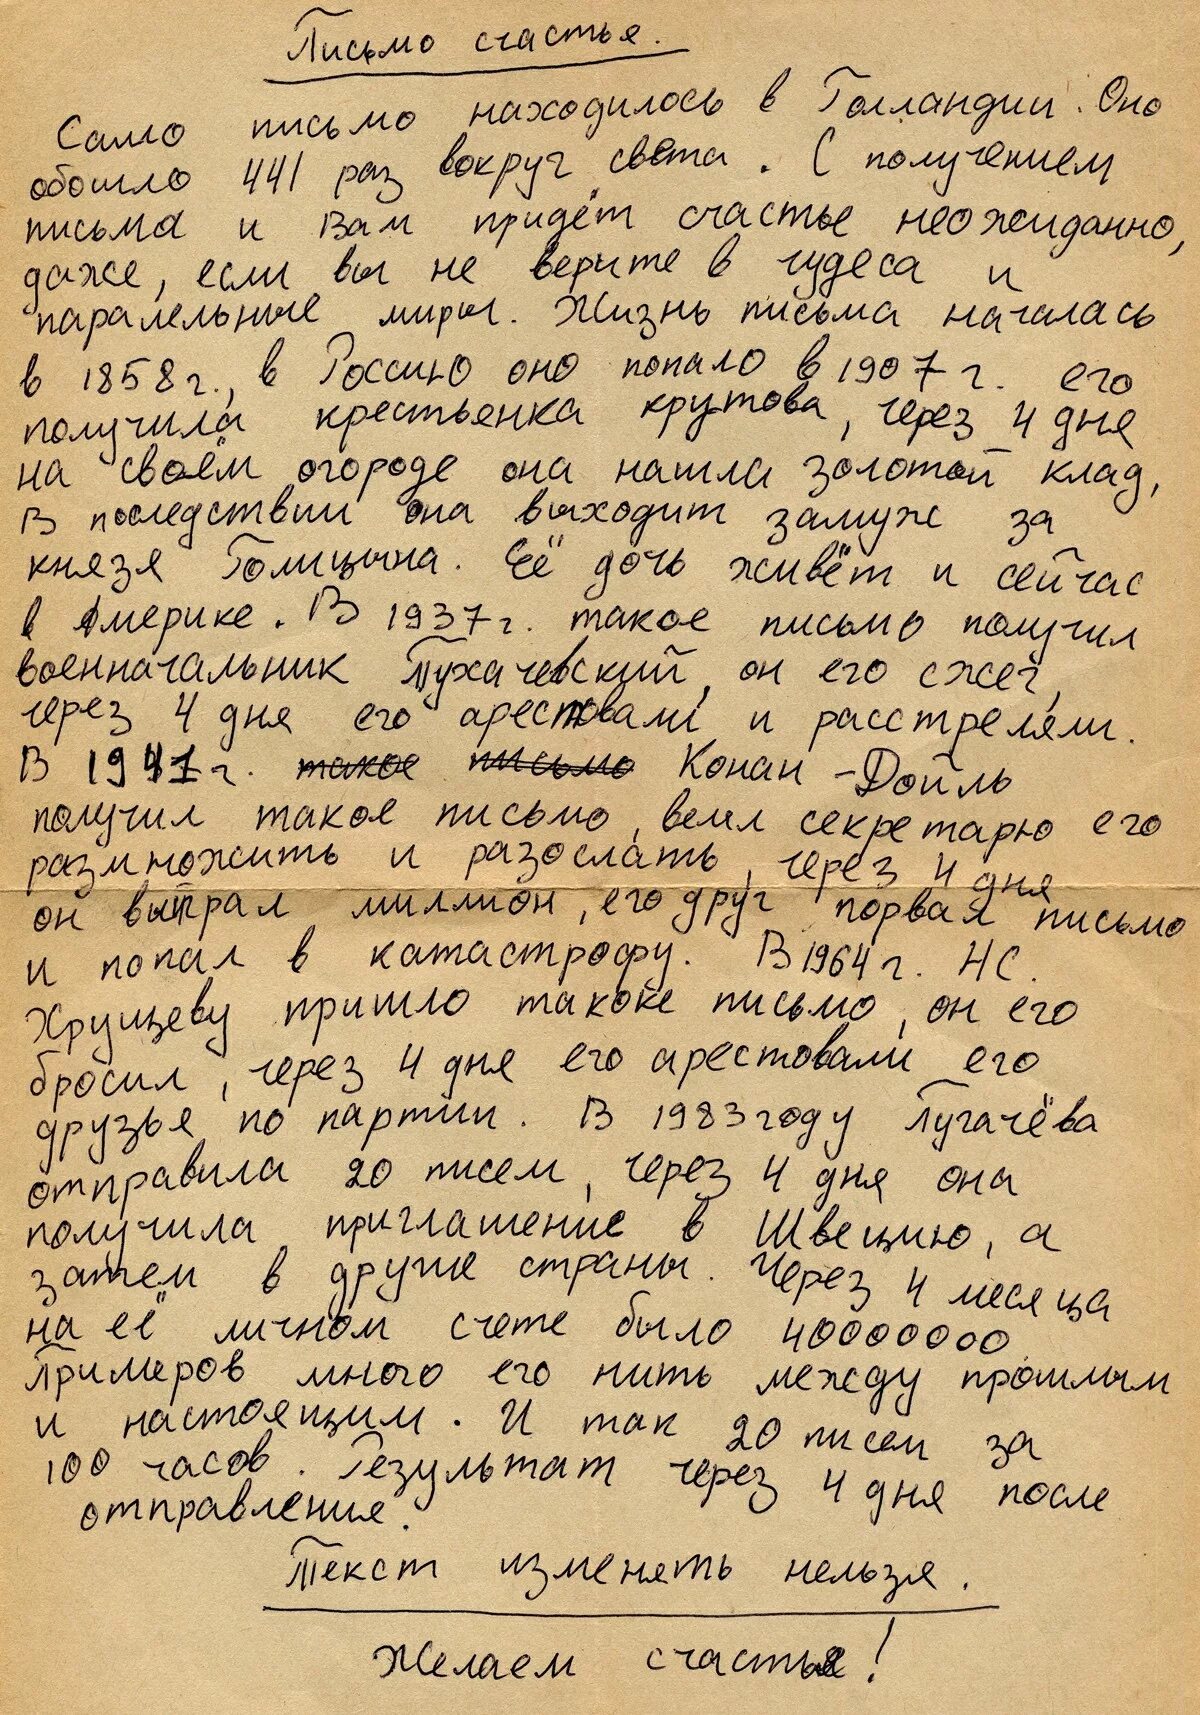 Письмо счастья.
Само письмо находилось в Голландии. Оно
обошло 441 раз вокруг света. С получением
письма и Вам придёт счастье неожиданно,
даже, если вы не верите в чудеса и
паралельные миры. Жизнь письма началась
в 1858г., в Россию оно попало в 1907г. его
получила крестьянка крутова, через 4 дня
на своём огороде она нашла золотой клад,
В последствии она выходит замуж за
князя Голицына. Её дочь живёт и сейчас
в Америке. В 1937г. такое письмо получил
военначальник Тухачевский, он его сжег,
через 4 дня его арестовали и расстреляли.
В 1941г. такое письмо Конан-Дойль
получил такое письмо, велел секретарю его
размножить и разослать, через 4 дня
он выграл миллион, его друг порвал письмо
и попал в катастрофу. В 1964г. НС.
Хрущеву пришло такоке письмо, он его
бросил, через 4 дня его арестовали его
друзья по партии. В 1983году Пугачёва
отправила 20 писем, через 4 дня она
получила приглашение в Швецию, а
затем в другие страны. Через 4 месяца
на её личном счете было 40000000
Примеров много его нить между прошлым
и настоящим. И так 20 писем за
100 часов. Результат через 4 дня после
отправления.
Текст изменять нельзя.
Желаем счастья!